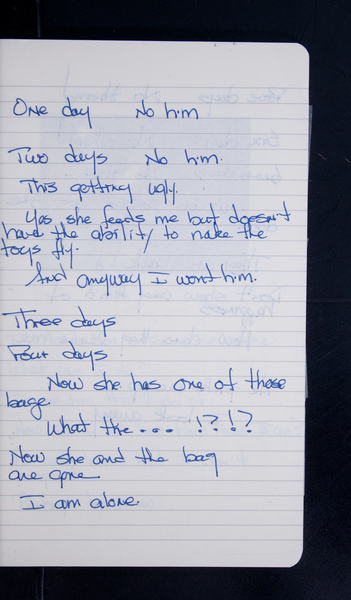 One day No him
Two days No him.
This getting ugly.
Yes, she feeds me but doesn't
have the ability to make the
toys fly.
And anyway I want him.
Three days
Four days
Now she has one of those
bags.
What the... !?!?
Now she and the bag
are gone
I am alone.